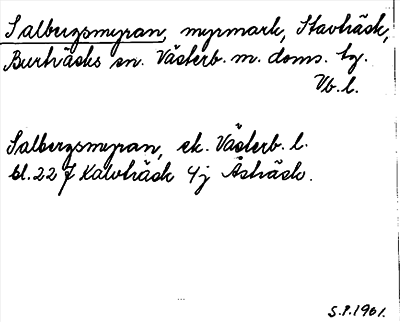 Salbergsmyran, myrmark, Stavträsk,
Burträsks sn. Västerb. m. doms. bg.
Vb. l.
Salbergsmyran, ek. Västerb. l.
bl. 22 J Kalvträsk 4j Åsträsk.
S.P. 1961.